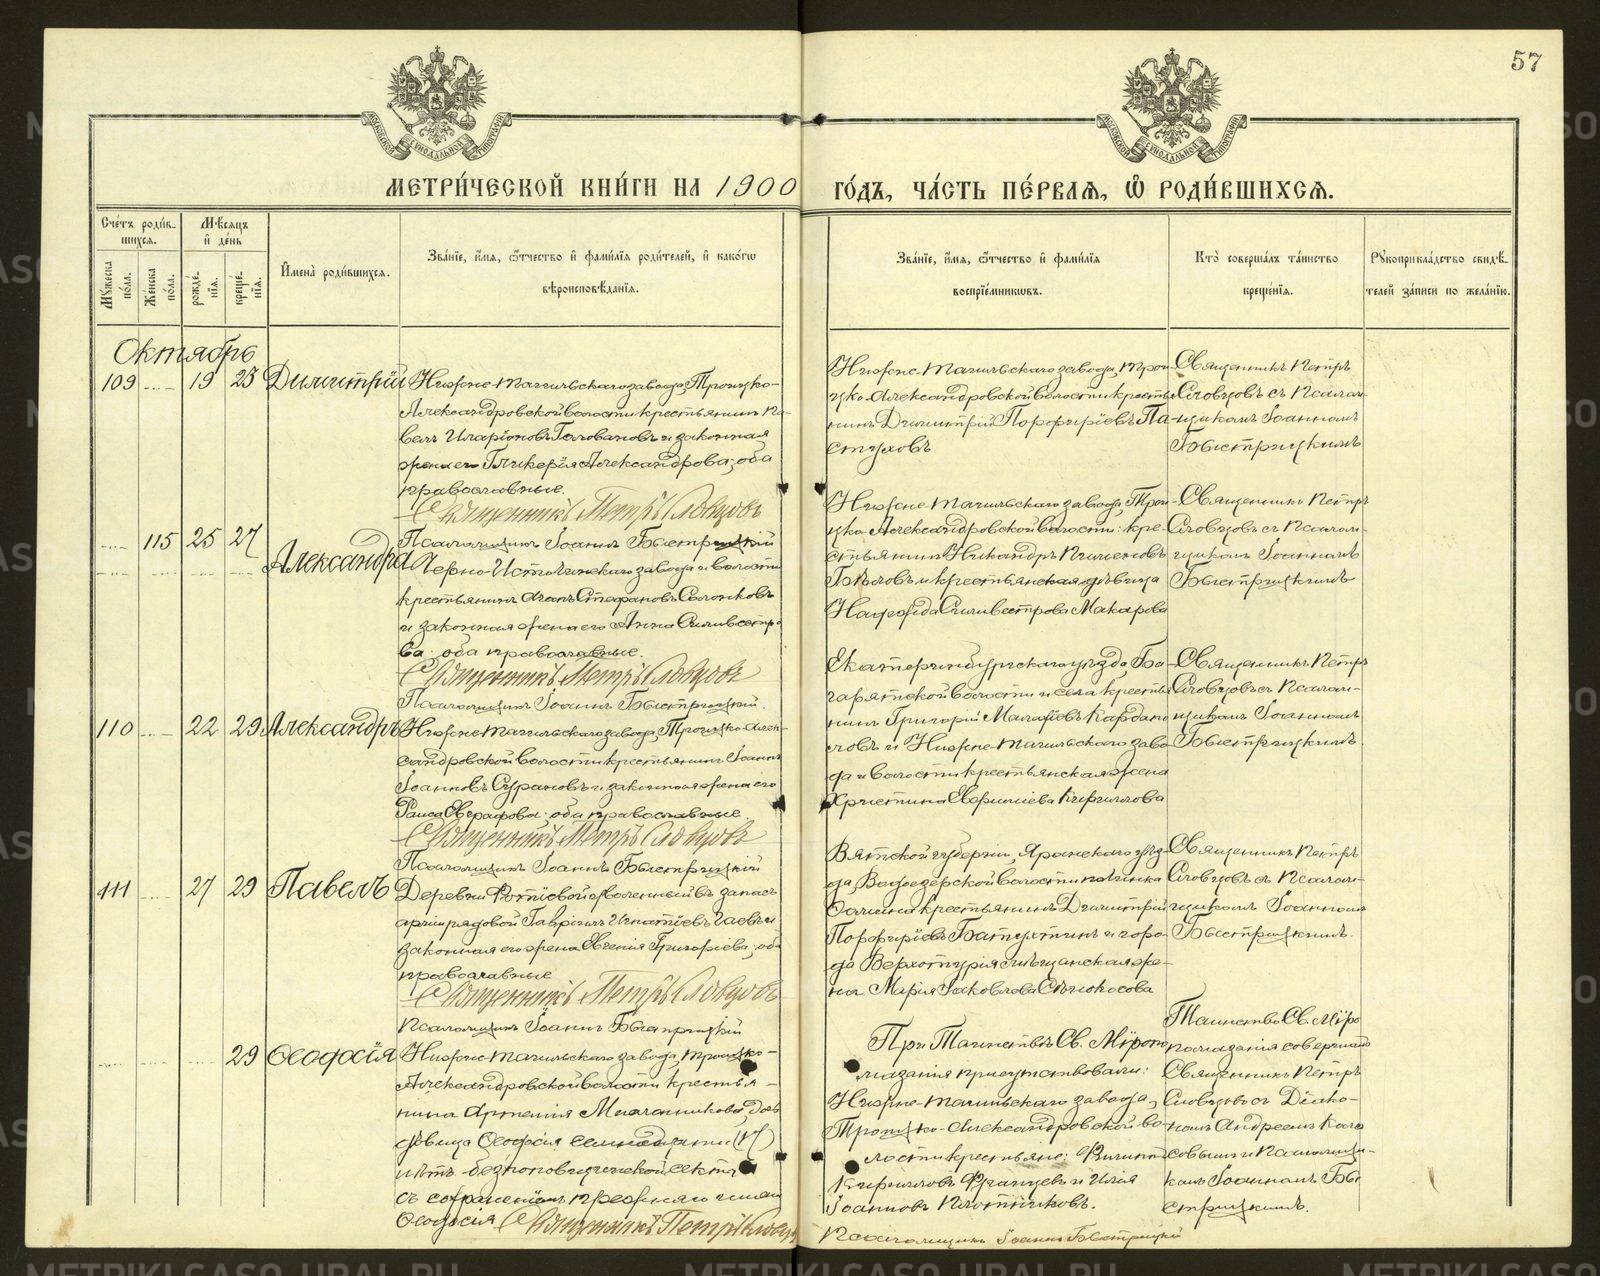 57
МОСКОВСКОЙ СѴНОДАЛЬНОЙ ТИПОГРАФІИ
МОСКОВСКОЙ СѴНОДАЛЬНОЙ ТИПОГРАФІИ
МЕТРИ́ЧЕСКОЙ КНИ́ГИ НА 1900 ГО́ДЪ, ЧА́СТЬ ПЕ́РВАѦ, Ѡ РОДИ́ВШИХСѦ.
Счётъ роди́в-
шихся.
Мѣсяцъ
и҆ де́нь
Му́жеска
по́ла.
Же́нска
по́ла.
рожде-
нія.
креще-
нія.
И҆мена̀ роди́вшихся.
Зва́нїе, и҆́мя, ѻ҆́тчество и҆ фами́лїя роди́телей, и҆ како́гѡ
вѣроисповѣ́данїя.
Зва́нїе, и҆́мя, ѻ҆́тчество и҆ фами́лїя
воспрїе́мникѡвъ.
Кто̀ соверша́лъ та́инство
креще́нїя.
Рꙋкоприкла́дство свидѣ́-
телей за́писи по жела́нїю.
Октябрь
109 19 23 Димитрій
Нижне-Тагильскаго завода, Троицко-
Александровской волости крестьянинъ Па-
велъ Иларіоновъ Головановъ и законная
жена его Гликерія Александрова; оба
православные.
Священникъ Петръ Словцовъ
Псаломщикъ Іоаннъ Быстрицкій
Нижне-Тагильскаго завода, Трои-
цко-Александровской волости крестья-
нинъ Димитрій Порфирьевъ Па-
стуховъ
Священникъ Петръ
Словцовъ съ Псалом-
щикомъ Іоанномъ
Быстрицкимъ
115 25 27 Александра
Черно-Источинскаго завода и волости
крестьянинъ Стефановъ
и законная жена его Анна Сильвестро-
ва; оба православные.
Священникъ Петръ Словцовъ
Псаломщикъ Іоаннъ Быстрицкій.
Нижне-Тагильскаго завода, Трои-
цко-Александровской волости: кре-
стьянинъ Никандръ Пименовъ
Бѣловъ и крестьянская дѣвица
Надежда Сильвестрова Макарова
Священникъ Петръ
Словцовъ съ Псалом-
щикомъ Іоанномъ
Быстрицкимъ
110 22 29 Александръ
Нижне-Тагильскаго завода, Троицко-Алек-
сандровской волости крестьянинъ Іоаннъ
Іоанновъ и законная жена его
Раиса Евграфова; оба православные
Священникъ Петръ Словцовъ
Псаломщикъ Іоаннъ Быстрицкій
Екатеринбургскаго уѣзда, Ба-
гарятской волости и села крестья-
нинъ Григорій
и Нижне-Тагильскаго заво-
да и волости крестьянская жена
Христина Кириллова
Священникъ Петръ
Словцовъ съ Псалом-
щикомъ Іоанномъ
Быстрицкимъ.
111 27 29 Павелъ
Деревни уволенный въ запасъ
арміи рядовой Гавріилъ Игнатіевъ и
законная его жена Евгенія Григорьева; оба
православные
Священникъ Петръ Словцовъ
Псаломщикъ Іоаннъ Быстрицкій
Вятской губерніи, Яранскаго уѣз-
да, волости починка
крестьянинъ Димитрій
Порфирьевъ и горо-
да Верхотурія мѣщанская же-
на Марія Іаковлева
Священникъ Петръ
Словцовъ съ Псалом-
щикомъ Іоанномъ
Быстрицкимъ.
29 Ѳеодосія
Нижне-Тагильскаго завода, Троицко-
Александровской волости крестья-
нина Артемія дочь
дѣвица Ѳеодосія семнадцати (17)
лѣтъ безпоповщинской секты
съ сохраненіемъ прежняго имени
Ѳеодосія Священникъ Петръ Словцовъ
Псаломщикъ Іоаннъ Быстрицкій
При Таинствѣ Св. Мѵропо-
мазанія присутствовали:
Нижне-Тагильскаго завода,
Троицко-Александровской во-
лости крестьяне: Филиппъ
Кирилловъ и Илія
Іоанновъ Плотниковъ.
Таинство Св. Мѵро
помазанія совершалъ
Священникъ Петръ
Словцовъ съ Діако-
номъ Андреемъ
и Псаломщи-
комъ Іоанномъ Бы-
стрицкимъ.